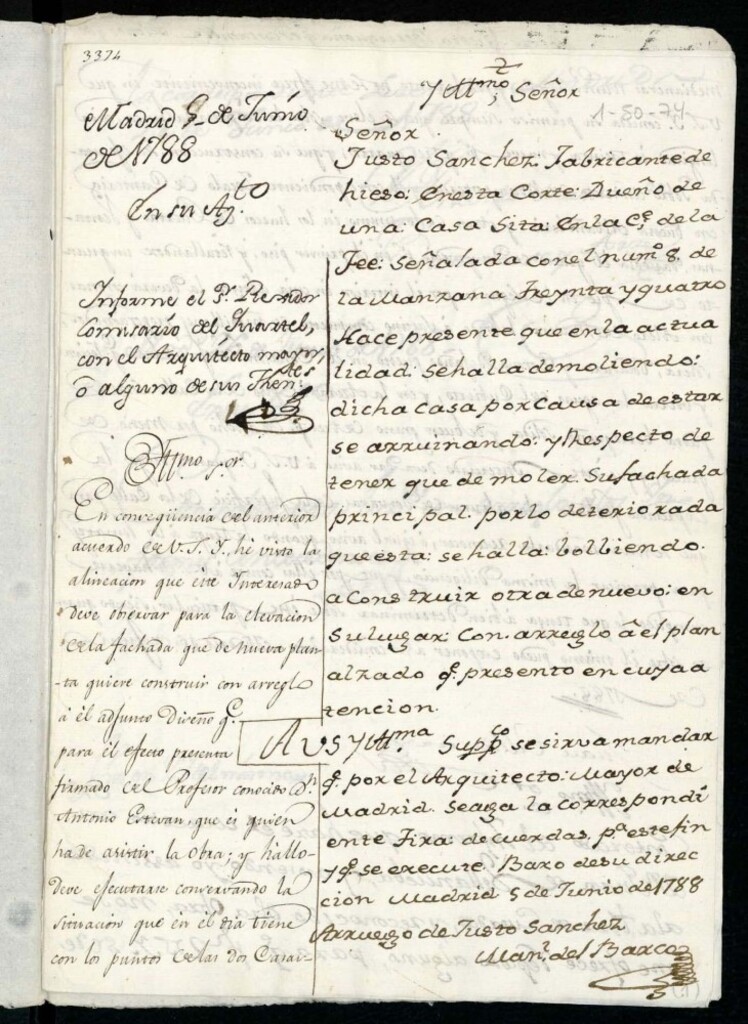 3374
Madrid 9 de Junio
de 1788
En su Ay.to
Informe el Sr. Regidor
Comisario del Quartel,
con el Arquitecto mayor,
ô alguno de sus Then.tes
Yttmo Sor.
En conseqüencia del anterior
acuerdo de V.S.Y. hè visto la
alineacion que este Interesado
deve observar para la elevacion
de la fachada que de nueva plan-
-ta quiere construir con arreglo
à el adjunto Diseño q.e
para el efecto presenta
firmado del Profesor conocido Dn.
Antonio Estevan, que es quien
ha de asistir la obra; y hallo
deve ejecutarse conservando la
situacion que en el dia tiene
con los puntos de las dos Casas-
Yttmo; Señor
1-50-74
Señor.
Justo Sanchez: Fabricante de
hieso: Enesta Corte: Dueño de
una: Casa Sita: Enla C.e de la
Fee: Señalada con el num.o 8. de
la Manzana Treynta y quatro
Hace presente que en la actua
lidad: sehalla demoliendo:
dicha Casa por causa de estar
se arruinando: y Respecto de
tener que de moler. Sufachada
principal. por lo deteriorada
que esta: sehalla: bolbiendo.
a Construir otra de nuevo: en
Sulugar: Con. arreglo â el plan
alzado q.e presento en cuya a
tencion.
A V S Yttma Supp.co se sirva mandar
q.e por el Arquitecto: Mayor de
Madrid. Seaga la correspondi
ente Tira: de cuerdas, p.a este fin
y q.e se execute. Baxo desu direc
cion Madrid 5 de Junio de 1788
Arruego de Justo Sanchez
Man.l del Barco